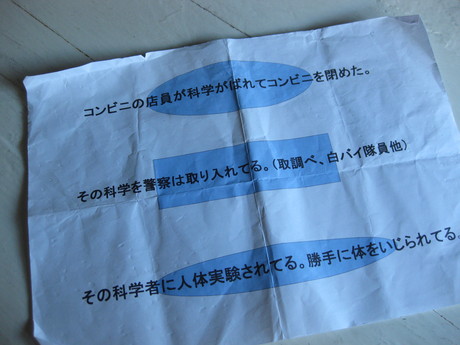 コンビニの店員が科学がばれてコンビニを閉めた。
その科学を警察は取り入れてる。(取調べ、白バイ隊員他)
その科学者に人体実験されてる。勝手に体をいじられてる。